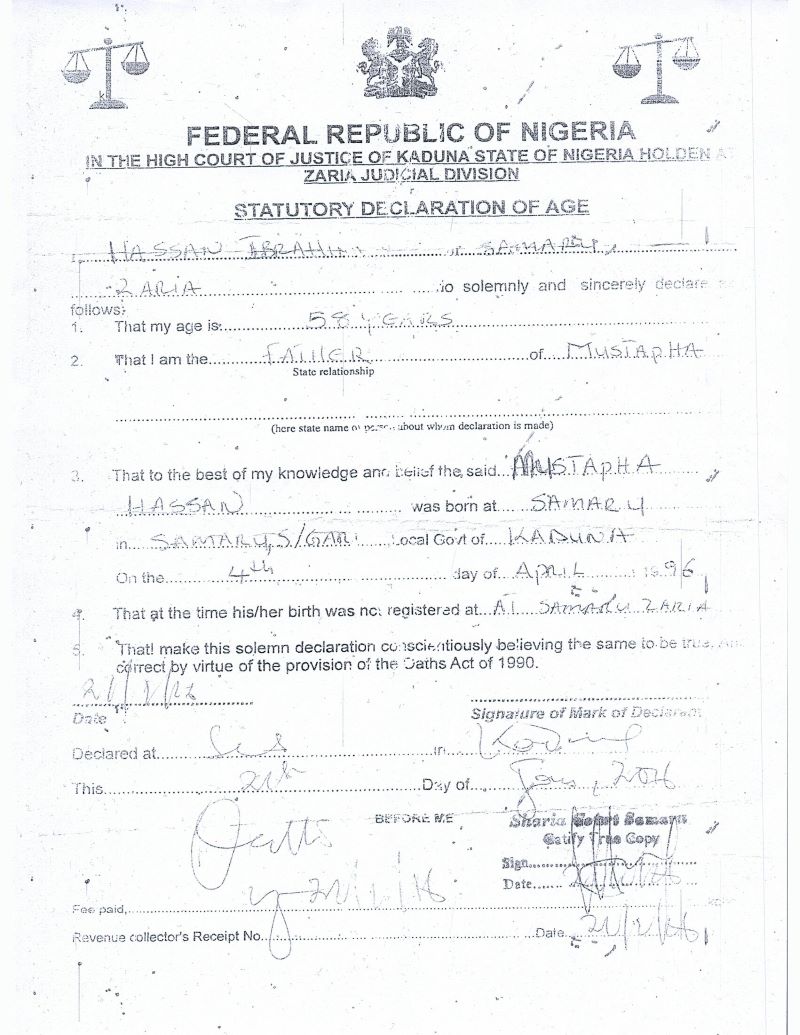 FEDERAL REPUBLIC OF NIGERIA
IN THE HIGH COURT OF JUSTICE OF KADUNA STATE OF NIGERIA HOLDEN AT
ZARIA JUDICIAL DIVISION
STATUTORY DECLARATION OF AGE
HASSAN IBRAHIM of SAMARU,
ZARIA do solemnly and sincerely declare as
follows:
1. That my age is: 58 YEARS
2. That I am the FATHER of MUSTAPHA
State relationship
(here state name of person about whom declaration is made)
3. That to the best of my knowledge and belief the said MUSTAPHA
HASSAN was born at SAMARU
in SAMARU, S/GARI Local Govt of KADUNA
On the 4th day of APRIL 1996
4. That at the time his/her birth was not registered at AT SAMARU ZARIA
5. That I make this solemn declaration conscientiously believing the same to be true, And
correct by virtue of the provision of the Oaths Act of 1990.
Date
Signature of Mark of Declarant
Declared at in
This 21st Day of Jan, 2016
BEFORE ME
Sharia Court Samaru
Catify True Copy
Sign
Date
Fee paid,
Revenue collector's Receipt No. Date